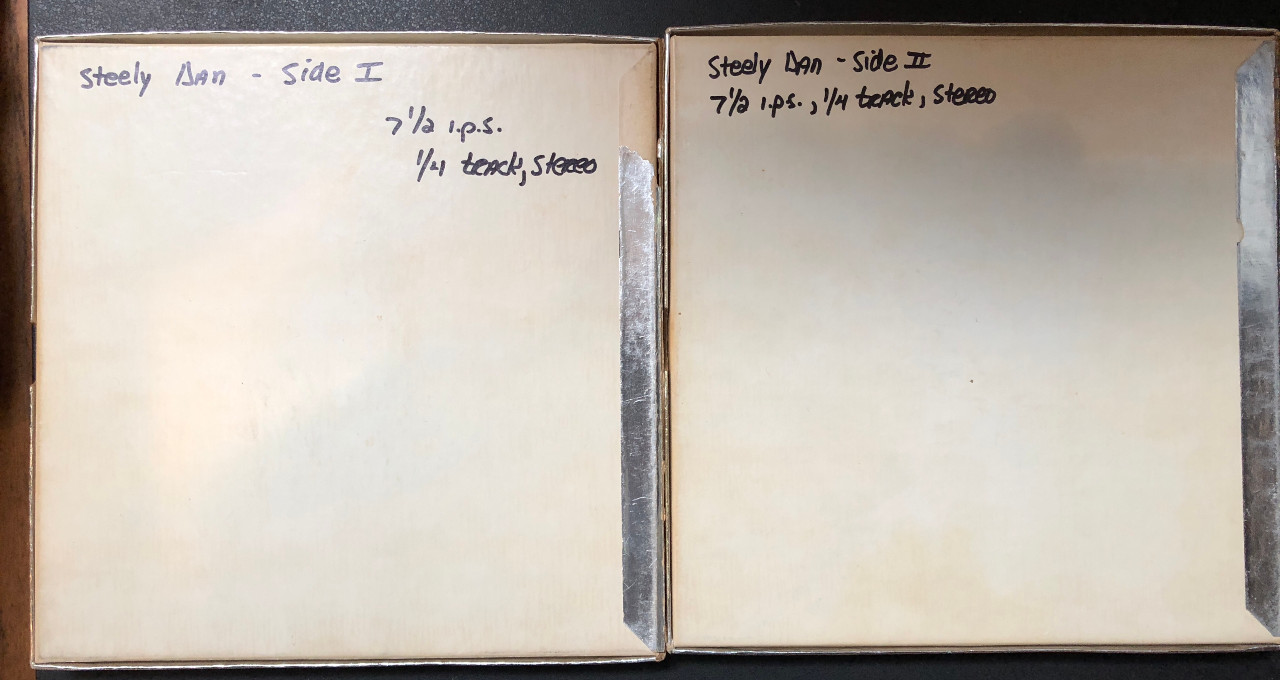 Steely Dan - Side I
7 1/2 i.p.s.
1/4 track, Stereo
Steely Dan - Side II
7 1/2 i.p.s., 1/4 track, Stereo